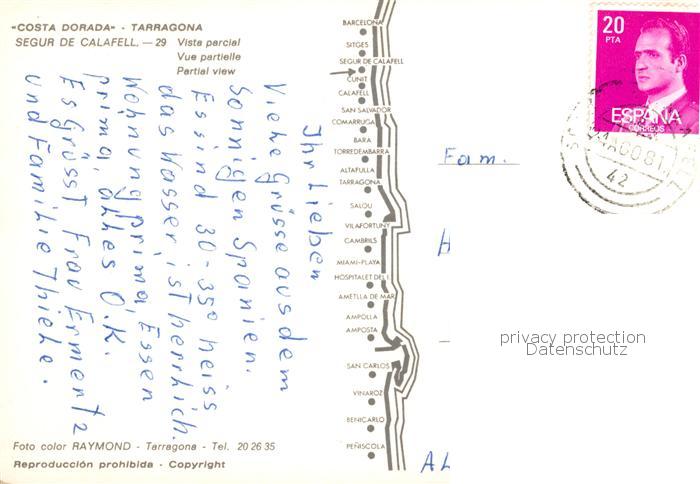 "COSTA DORADA" - TARRAGONA
SEGUR DE CALAFELL. — 29 Vista parcial
Vue partielle
Partial view
Ihr Lieben
Viehe Grüsse aus dem
Sonnigen Spanien.
Es sind 30-35° heiss
das Wasser ist herrlich.
Wohnung prima, Essen
prima, alles O.K.
Es grüsst Frau Ermertz
und Familie Thiehe.
Foto color RAYMOND - Tarragona - Tel. 20 26 35
Reproducción prohibida - Copyright
BARCELONA
SITGES
SEGUR DE CALAFELL
CUNIT
CALAFELL
SAN SALVADOR
COMARRUGA
BARA
TORREDEMBARRA
ALTAFULLA
TARRAGONA
SALOU
VILAFORTUNY
CAMBRILS
MIAMI-PLAYA
HOSPITALET DEL I.
AMETLLA DE MAR
AMPOLLA
AMPOSTA
SAN CARLOS
VINAROZ
BENICARLO
PEÑISCOLA
20
PTA
ESPAÑA
CORREOS
AGO 81
42
Fam.
privacy protection
Datenschutz